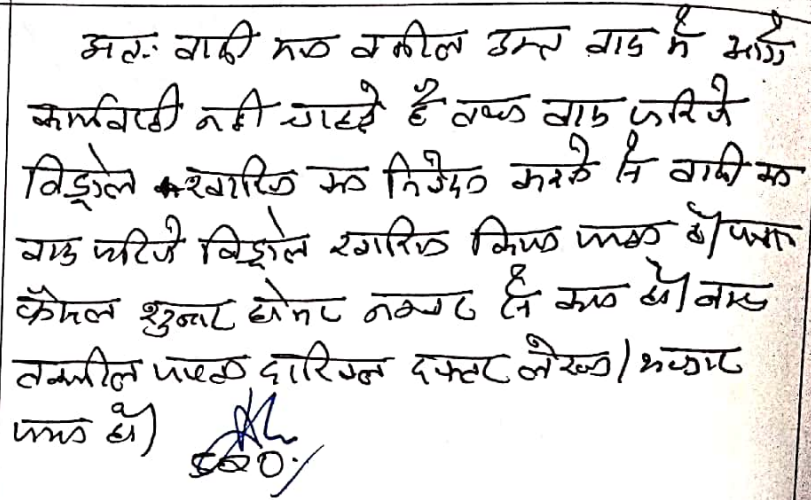 अतः वादी मय वकील उक्त वाद में आगे
कार्यवाही नही चाहते है तथा वाद जरिये
विड्रोल खारिज का निवेदन करते है वादी का
वाद जरिये विड्रोल खारिज किया जाता है।
फैसल शुमार होकर नम्बर से कम हो। बाद
तकमील दाखिल दफ्तर
जाता है।